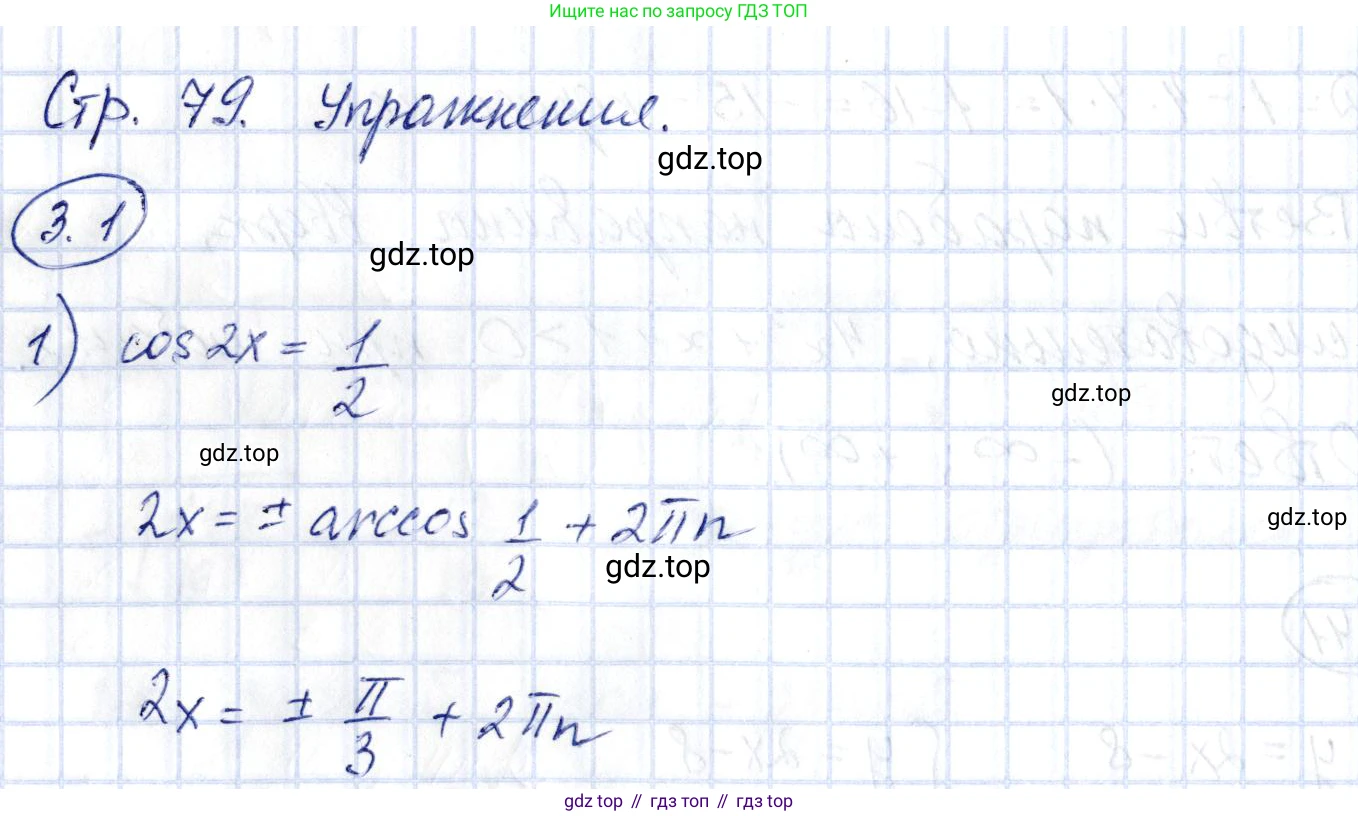 Ищите нас по запросу ГДЗ ТОП
Стр. 79. Упражнения.
gdz.top
3.1
gdz.top
1) cos 2x = 1/2
gdz.top
gdz.top
2x = ± arccos 1/2 + 2πn
gdz.top
gdz.top
2x = ± π/3 + 2πn
gdz top // гдз топ // гдз top